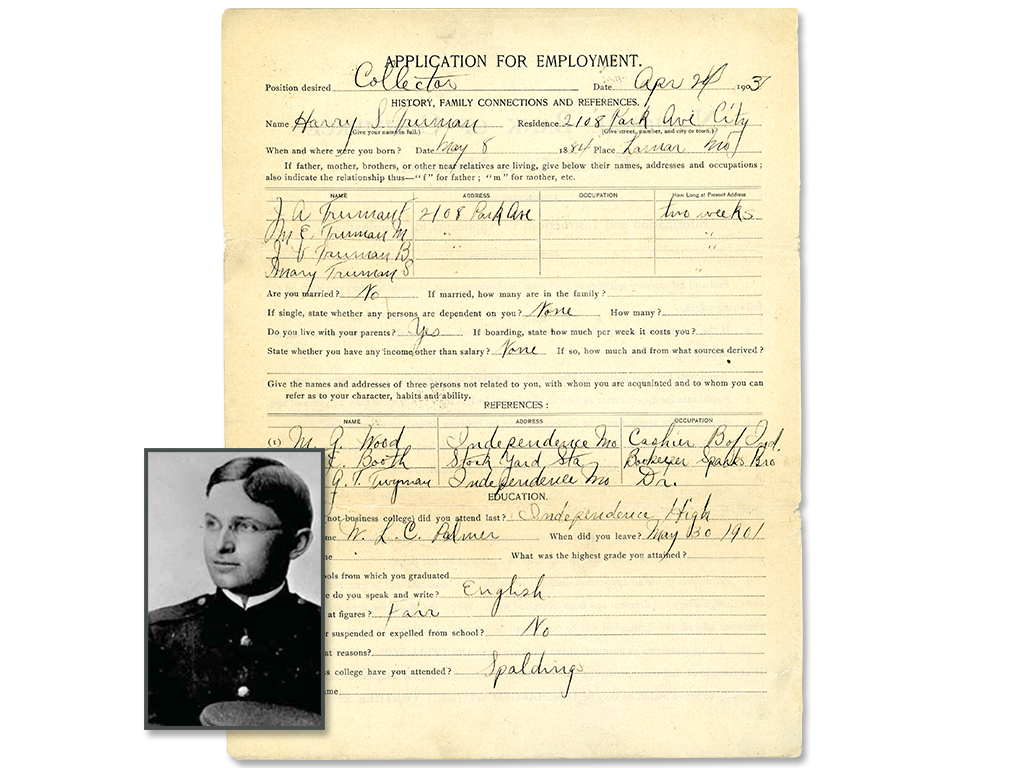 APPLICATION FOR EMPLOYMENT.
Position desired Collector Date Apr 24 1903
HISTORY, FAMILY CONNECTIONS AND REFERENCES.
Name Harry S. Truman Residence 2108 Park Ave City
(Give your name in full.) (Give street, number, and city or town.)
When and where were you born? Date May 8 1884 Place Lamar Mo
If father, mother, brothers, or other near relatives are living, give below their names, addresses and occupations;
also indicate the relationship thus—"f" for father; "m" for mother, etc.
NAME ADDRESS OCCUPATION How Long at Present Address
J A Truman f 2108 Park Ave two weeks
M E Truman M " "
J V Truman B " "
Mary Truman S "
Are you married? No If married, how many are in the family?
If single, state whether any persons are dependent on you? None How many?
Do you live with your parents? Yes If boarding, state how much per week it costs you?
State whether you have any income other than salary? None If so, how much and from what sources derived?
Give the names and addresses of three persons not related to you, with whom you are acquainted and to whom you can
refer as to your character, habits and ability.
REFERENCES:
NAME ADDRESS OCCUPATION
(1) M. G. Wood Independence Mo Cashier B of Ind.
Booth Stock Yard Sta Bookeeper Sparks Bro
G. T. Twyman Independence Mo Dr.
EDUCATION.
(not business college) did you attend last? Independence High
me W. L. C. Palmer When did you leave? May 30 1901
me What was the highest grade you attained?
ols from which you graduated
e do you speak and write? English
at figures? Fair
r suspended or expelled from school? No
at reasons?
ss college have you attended? Spaldings
me